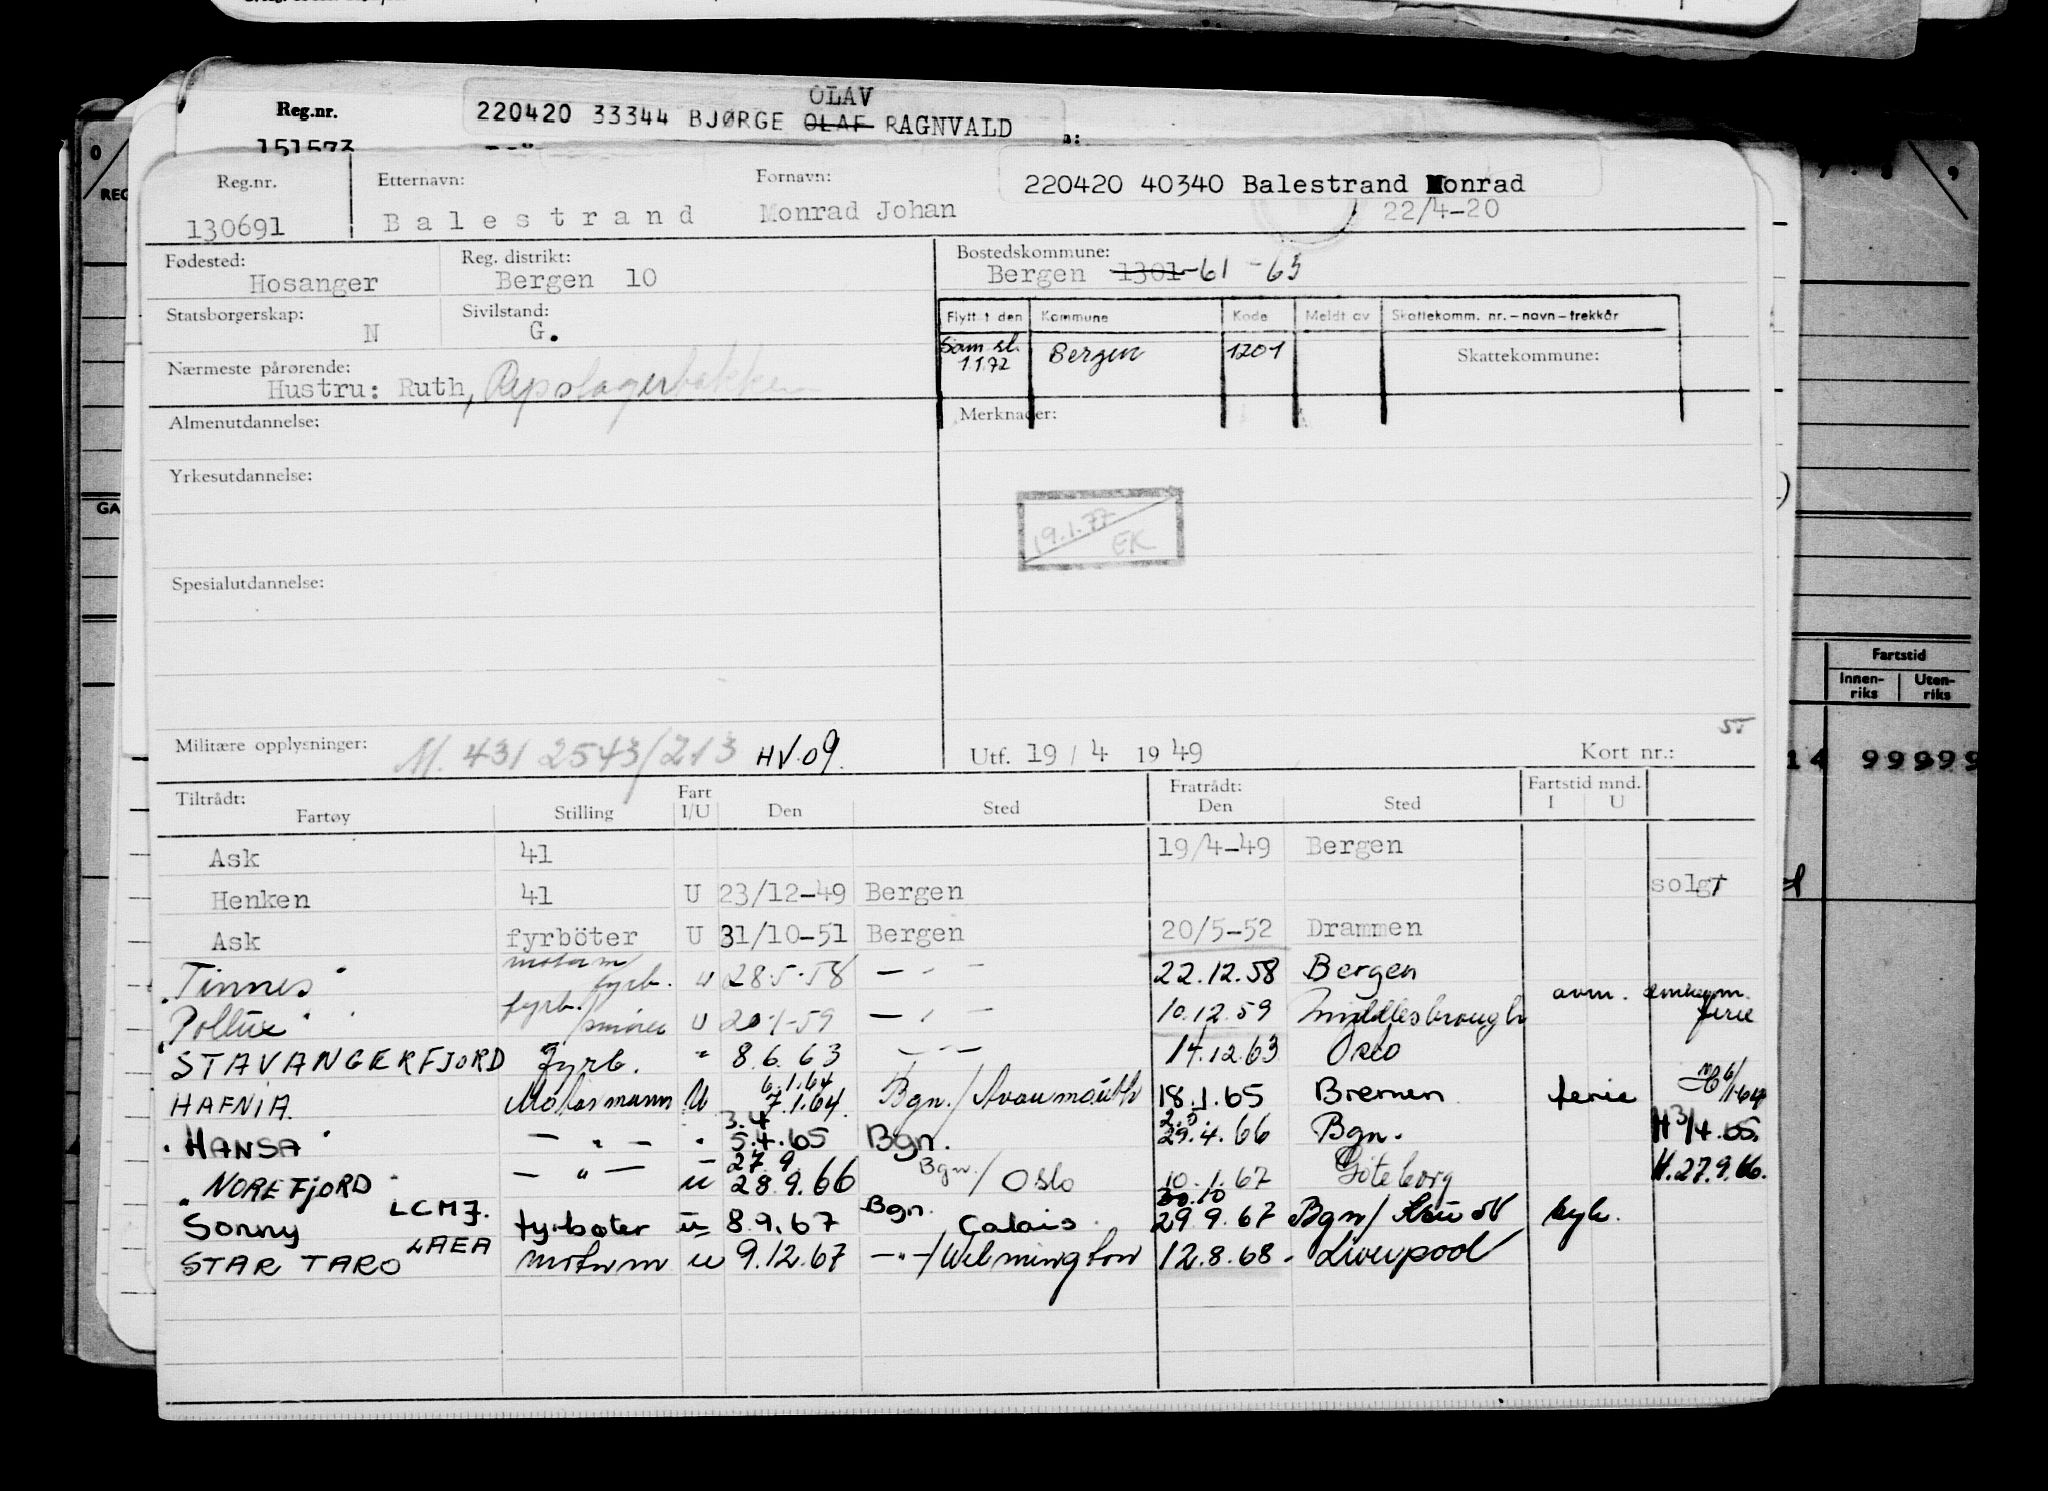 OLAV
Reg.nr. 220420 33344 BJØRGE OLAF RAGNVALD
151573
Reg.nr. Etternavn: Fornavn: 220420 40340 Balestrand Monrad
130691 Balestrand Monrad Johan 22/4-20
Fødested: Reg. distrikt: Bostedskommune:
Hosanger Bergen 10 Bergen 1301-61-63
Statsborgerskap: Sivilstand: Flytt t den Kommune Kode Meldt av Skattekomm. nr.-navn-trekkår
N G. Sam sl. 1.1.72 Bergen 1201 Skattekommune:
Nærmeste pårørende:
Hustru: Ruth, Repslagerbakken
Almenutdannelse: Merknader:
Yrkesutdannelse:
19.1.77
EK
Spesialutdannelse:
Fartstid
Innen-riks Uten-riks
55
Militære opplysninger: M. 431 2543/213 HV.09. Utf. 19/4 1949 Kort nr.:
14 99999
Tiltrådt: Fart Fratrådt: Fartstid mnd.
Fartøy Stilling I/U Den Sted Den Sted I U
Ask 41 19/4-49 Bergen
Henken 41 U 23/12-49 Bergen solgt
Ask fyrböter U 31/10-51 Bergen 20/5-52 Drammen
Tinnes motorm/fyrb. U 28.5.58 — " — 22.12.58 Bergen
Pollux fyrb./smörer U 20-1-59 — " — 10.12.59 Middlesbrough avm. ferie
STAVANGERFJORD fyrb. " 8.6.63 — " — 14.12.63 Oslo
6.1.64
HAFNIA Motormann U 7.1.64. Bgn./Avonmouth 18.1.65 Bremen ferie 6/1-64
3.4 2.5.
HANSA — " — " 5.4.65 Bgn. 29.4.66 Bgn. H 3/4.65.
27.9.
NOREFJORD — " — U 28.9.66 Bgn./Oslo 10.1.67 Göteborg H.27.9.66.
30.10
Sonny LCMJ. fyrbøter U 8.9.67 Bgn. Calais 29.9.67 Bgn/ syk.
STAR TARO LAEA motorm U 9.12.67 — " —/Wilmington 12.8.68. Liverpool